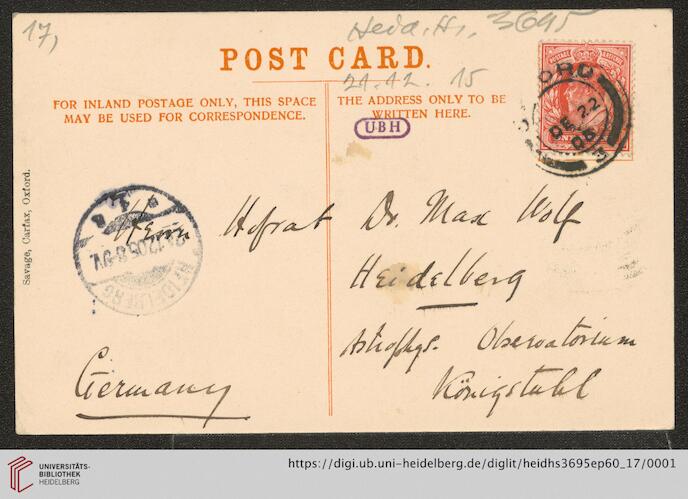 17,
Heid. Hs. 3695
POST CARD.
21.12. 15
FOR INLAND POSTAGE ONLY, THIS SPACE
MAY BE USED FOR CORRESPONDENCE.
THE ADDRESS ONLY TO BE
WRITTEN HERE.
UBH
DE 22
05
Savage, Carfax, Oxford.
HEIDELBERG
Herrn Hofrat Dr. Max Wolf
Heidelberg
Astrophys. Observatorium
Königstuhl
Germany
UNIVERSITÄTS-
BIBLIOTHEK
HEIDELBERG
https://digi.ub.uni-heidelberg.de/diglit/heidhs3695ep60_17/0001